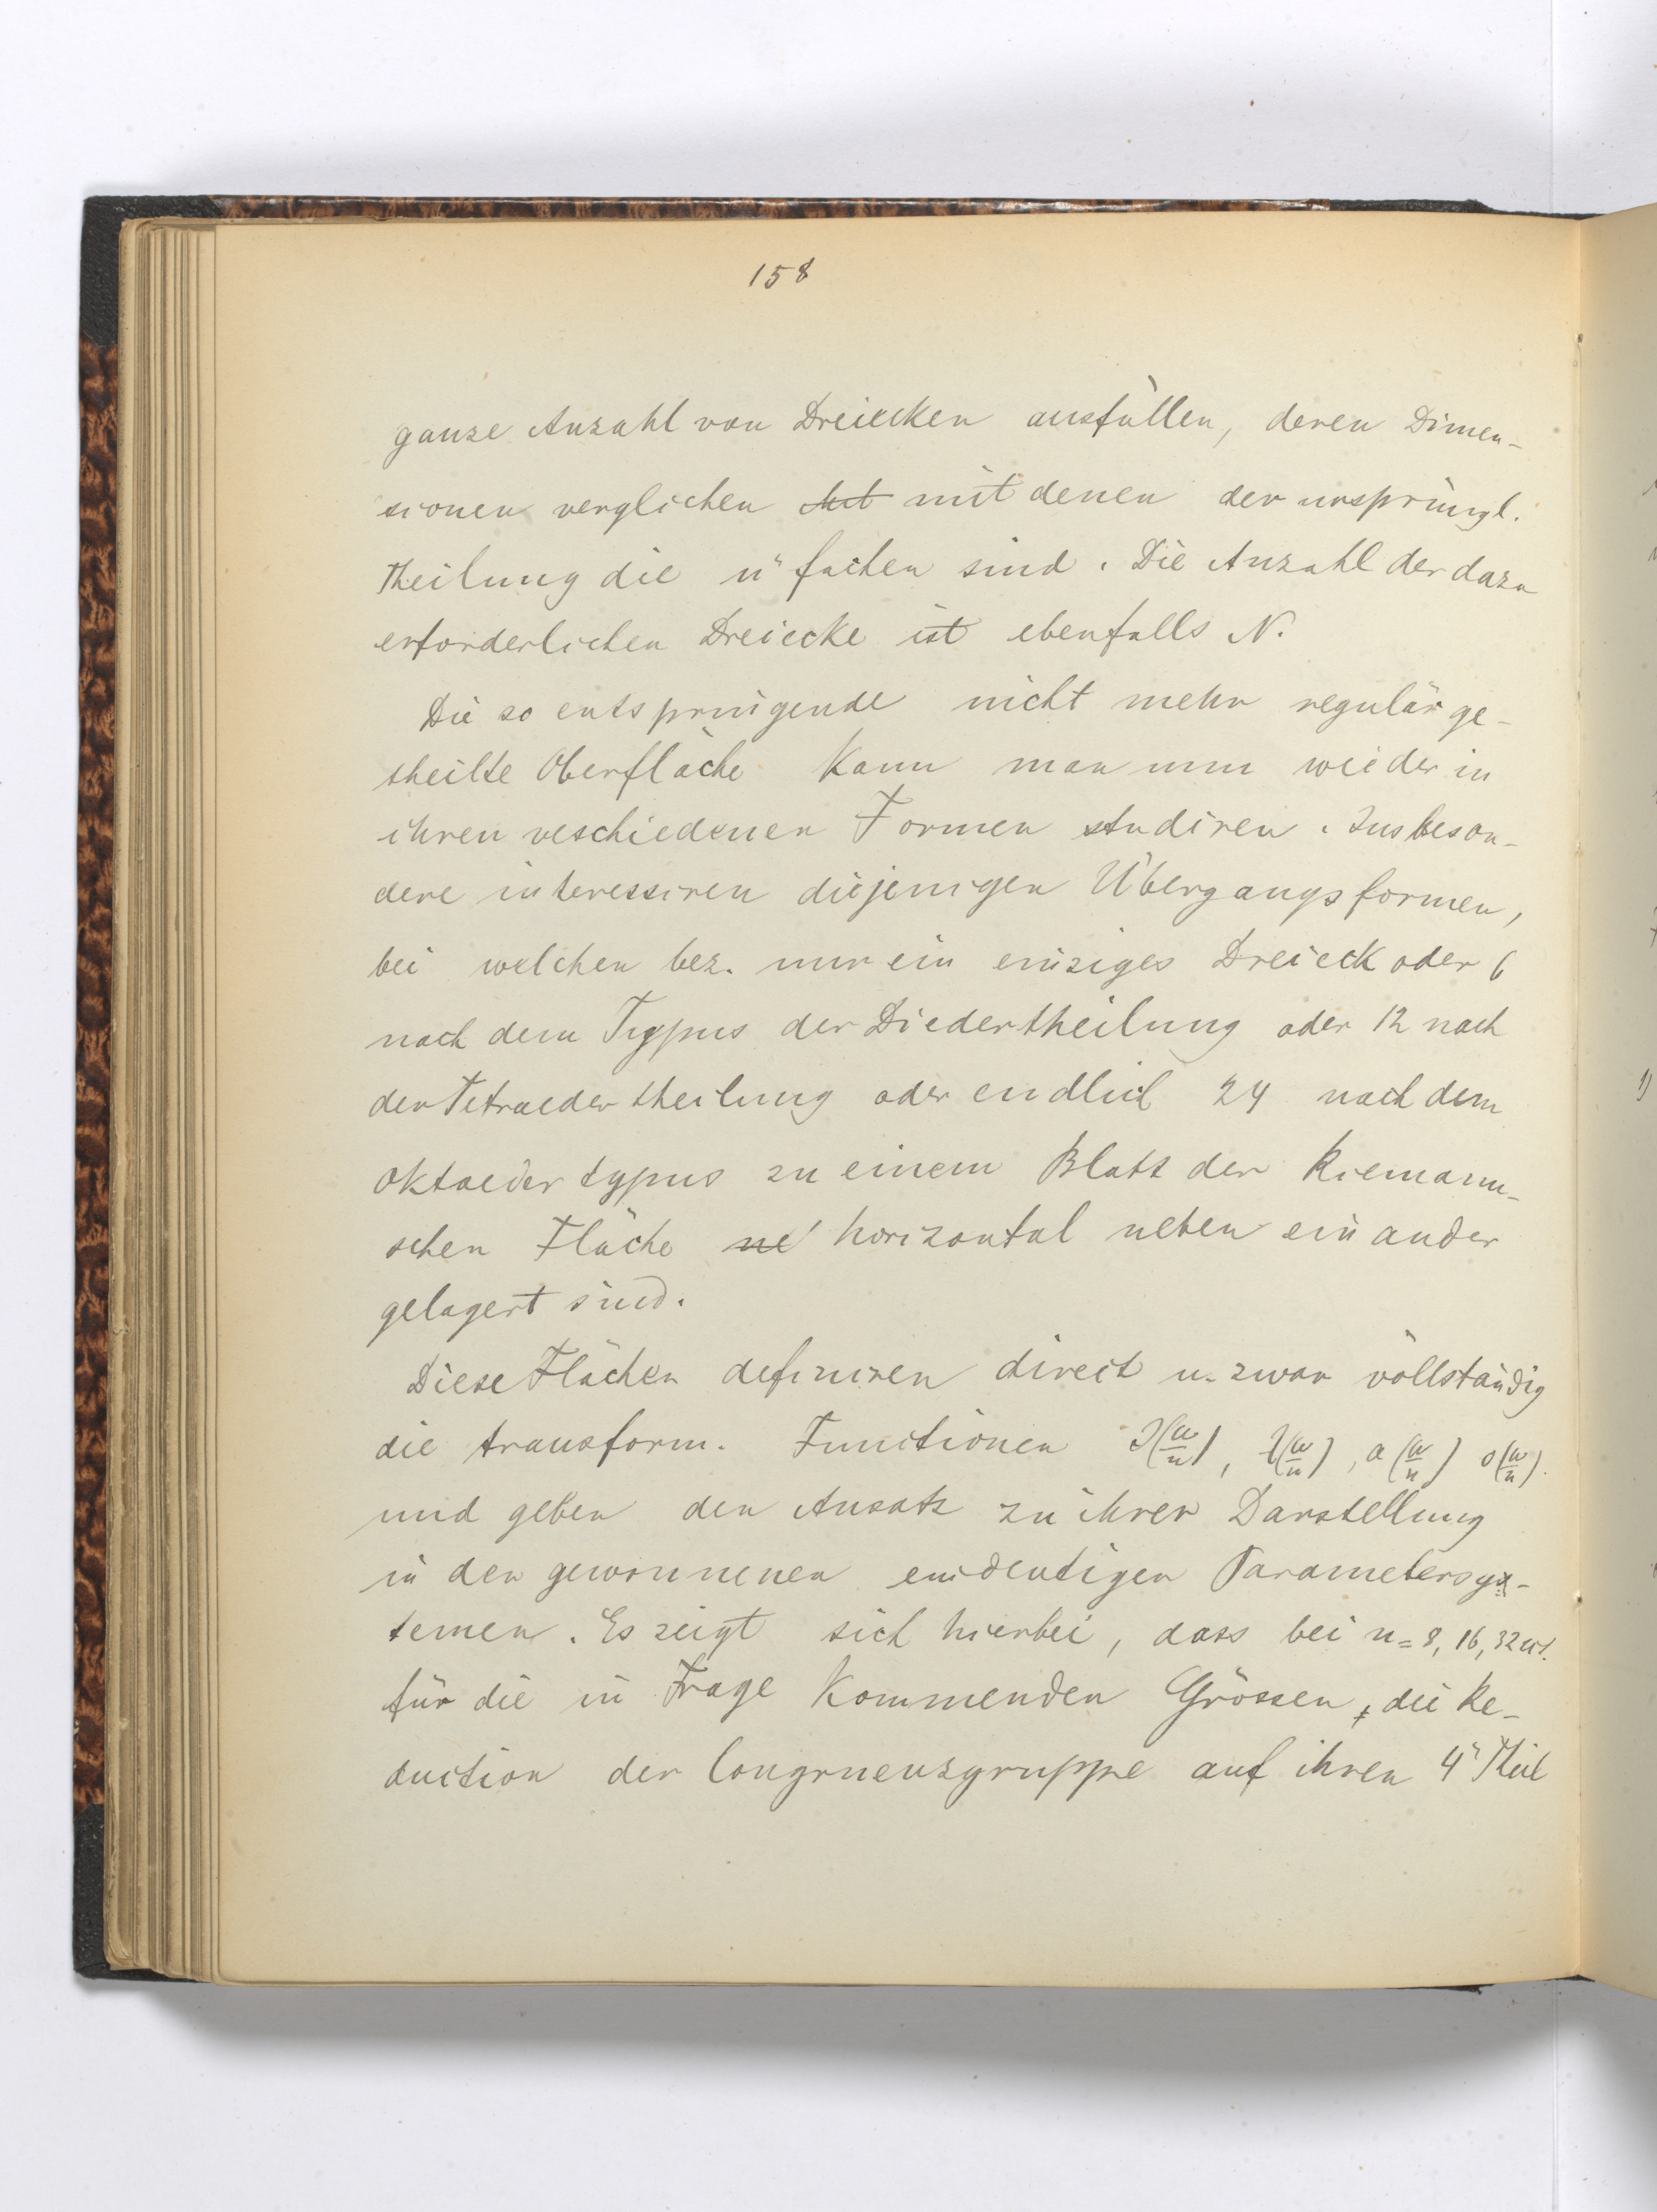 158
ganze Anzahl von Dreiecken ausfüllen, deren Dimen-
sionen verglichen mit denen der ursprüngl.
Theilung die n" fachen sind. Die Anzahl der dazu
erforderlichen Dreiecke ist ebenfalls N.
Die so entspringende nicht mehr regulär ge-
theilte Oberfläche kann man nun wieder in
ihren veschiedenen Formen studiren. Insbeson-
dere interessiren diejenigen Übergangsformen,
bei welchen bez. nur ein einziges Dreieck oder 6
nach dem Typus der Diedertheilung oder 12 nach
der Tetraedertheilung oder endlich 24 nach dem
Oktaedertypus zu einem Blatt der Riemann-
schen Fläche horizontal neben einander
gelagert sind.
Diese Flächen definiren direct u. zwar vollständig
die transform. Functionen J(ω/n), λ(ω/n), a(ω/n) o(ω/n).
und geben den Ansatz zu ihrer Darstellung
in den gewonnenen eindeutigen Parametersys-
temen. Es zeigt sich hierbei, dass bei n = 8, 16, 32 etc.
für die in Frage kommenden Grössen, die Re-
duction der Congruenzgruppe auf ihren 4" Theil